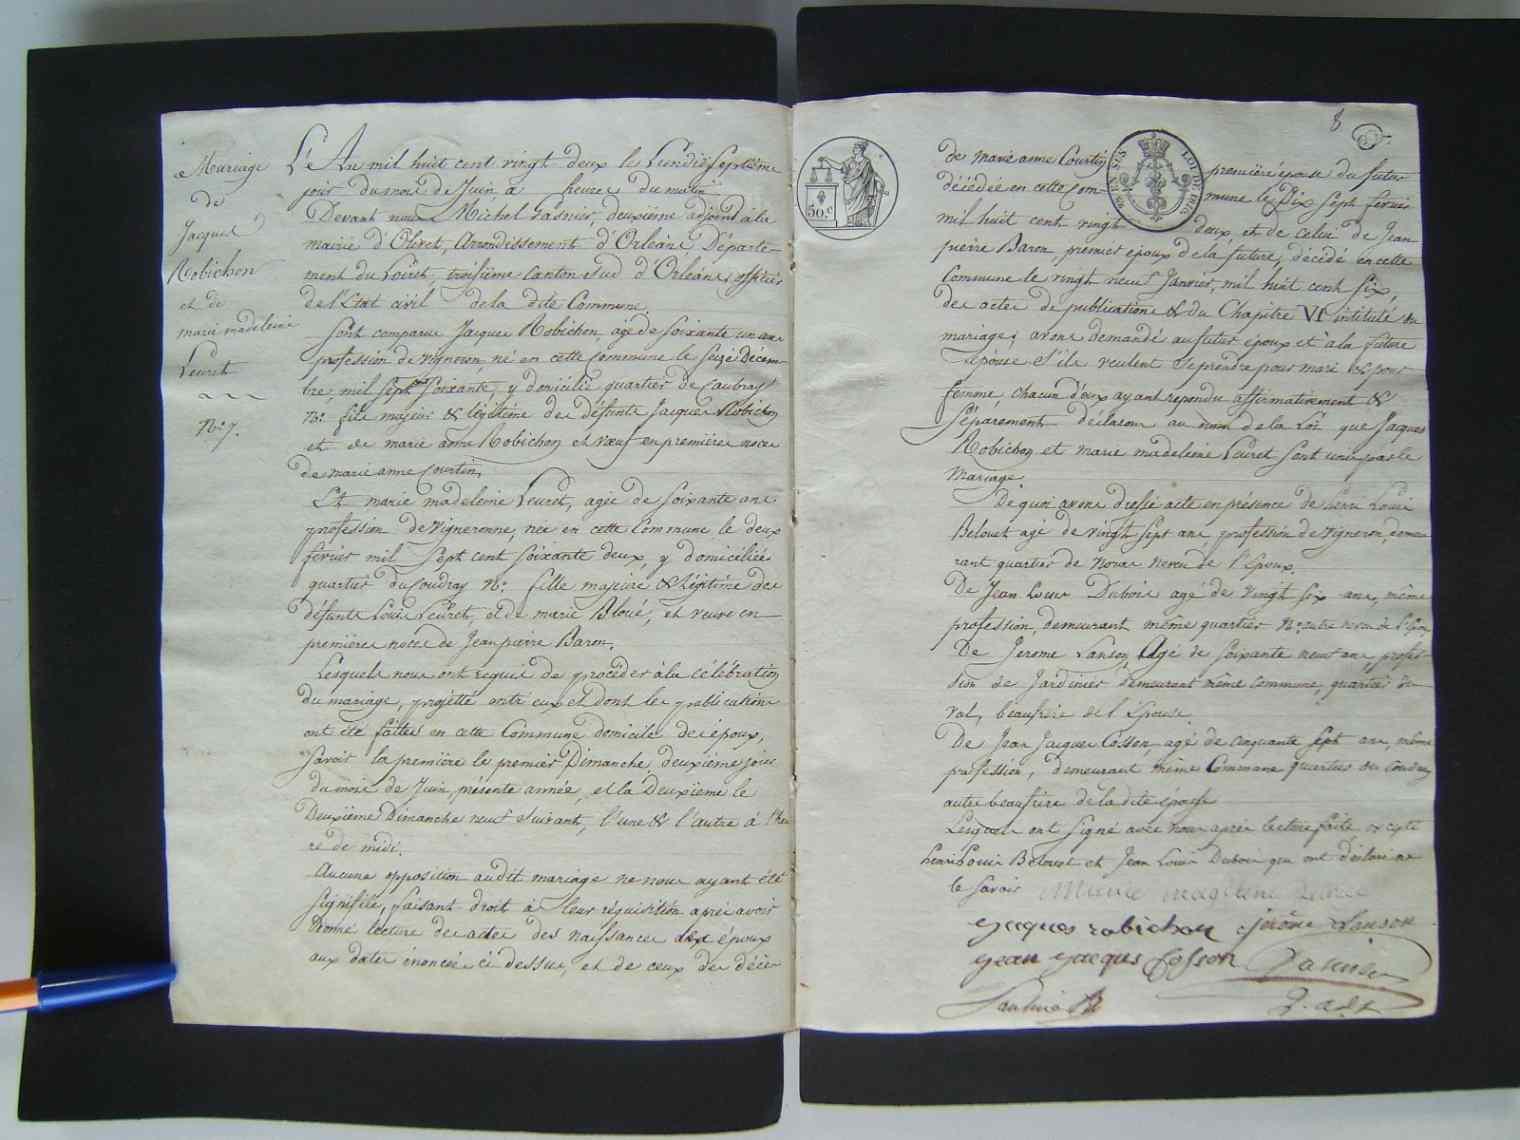 Mariage
de
Jacques
Robichon
et de
marie madeleine
Leuret
N.o 7.
L'An mil huit cent vingt deux le Lundi dix septieme
jour du mois de Juin à heures du matin
Devant nous Michel Pasnier, deuxième adjoint à la
mairie d'Olivet, Arrondissement d'Orléans Départe-
ment du Loiret, troisième canton sud d'Orléans, officier
de l'Etat civil de la dite Commune.
Sont comparus Jacques Robichon, agé de soixante un ans
profession de vigneron, né en cette commune le seize Décem-
bre mil sept soixante, y domicilié quartier de Caubray
N.o fils majeur & légitime des défunts Jacques Robichon
et de marie anne Robichon et vœuf en premières noces
de marie anne Courtin,
Et marie madeleine Leuret, agée de soixante ans
profession de vigneronne, née en cette Commune le deux
fevrier mil sept cent soixante deux, y domiciliée
quartier du Coudray N.o fille majeure & légitime des
défunts Louis Leuret, et de marie Bloué, et veuve en
premières noces de Jean pierre Baron.
Lesquels nous ont requis de procéder à la célébration
du mariage, projetté entre eux et dont les publications
ont été faittes en cette Commune domicile des époux,
savoir la première le premier Dimanche deuxième jour
du mois de Juin, présente année, et la Deuxième le
Deuxième Dimanche neuf suivant, l'une & l'autre à l'heu
re de midi.
Aucune opposition audit mariage ne nous ayant été
signifiée, faisant droit à leur réquisition après avoir
Donné lecture des actes des naissances des époux
aux dates énoncées ci dessus, et de ceux des décès
8
50.c
LOI DE 1816
de marie anne Courtin première épouse du futur
décédée en cette Com- mune le Dix Sept fevrier
mil huit cent vingt deux et de celui de Jean
pierre Baron, premier époux de la future, décédé en cette
Commune le vingt neuf Janvier, mil huit cent six,
des actes de publications & du Chapitre VI intitulé du
mariage; avons demandé au futur époux et à la future
épouse s'ils veulent se prendre pour mari & pour
femme, chacun d'eux ayant repondu affirmativement &
séparément déclarons au nom de la Loi que Jacques
Robichon et marie madeleine Leuret sont unis par le
mariage.
De quoi avons dressé acte en présence de henri Louis
Belouet agé de vingt sept ans profession de vigneron, demeu
rant quartier de Noras neveu de l'époux.
De Jean Louis Dubois agé de vingt six ans, même
profession, demeurant même quartier N.o autre neveu de l'époux
De Jerome Lanson, Agé de soixante neuf ans, profes-
sion de Jardinier demeurant même commune, quartier du
val, beaufrère de l'épouse.
De Jean Jacques Cosson agé de cinquante sept ans, même
profession, demeurant même Commune quartier du Coudray
autre beaufrère de la dite épouse
Lesquels ont signé avec nous après lecture faite, excepté
henri Louis Belouet et Jean Louis Dubois qui ont déclaré ne
le savoir marie magdleine Leuret
jacques robichon jérôme Lanson
jean jacques Cosson Pasnier
2. adjt